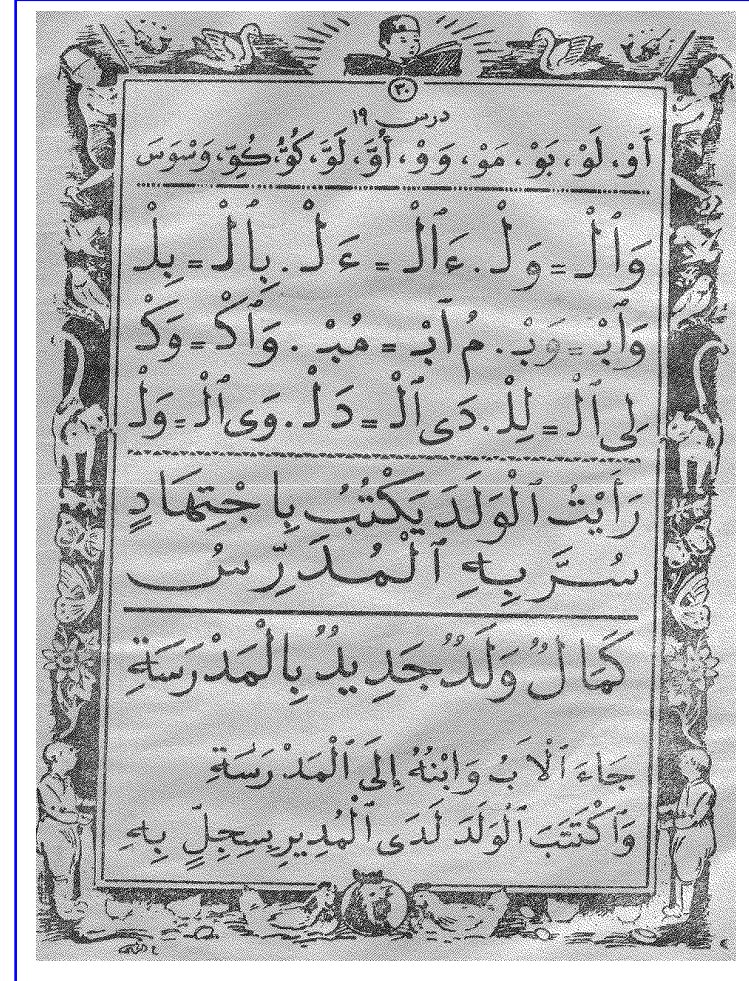 ٣٠
درس ١٩
أَوْ، لَوْ، بَوْ، مَوْ، وَوْ، أَوَّ، لَوَّ، كُوُّ، كُوِّ، وَسْوَسَ
وَٱلْ = وَلْ. ءَٱلْ = ءَلْ. بِٱلْ = بِلْ
وَٱبْ = وَبْ. مُ ٱبْ = مُبْ. وَٱكْ = وَكْ
لِى ٱلْ = لِلْ. دَى ٱلْ = دَلْ. وَى ٱلْ = وَلْ
رَأَيْتُ ٱلْوَلَدَ يَكْتُبُ بِاجْتِهَادٍ
سُرَّ بِهِ ٱلْمُدَرِّسُ
كَمَالٌ وَلَدٌ جَدِيدٌ بِالْمَدْرَسَةِ
جَاءَ ٱلْأَبُ وَابْنُهُ إِلَى ٱلْمَدْرَسَةِ
وَٱكْتَتَبَ ٱلْوَلَدَ لَدَى ٱلْمُدِيرِ بِسِجِلٍّ بِهِ